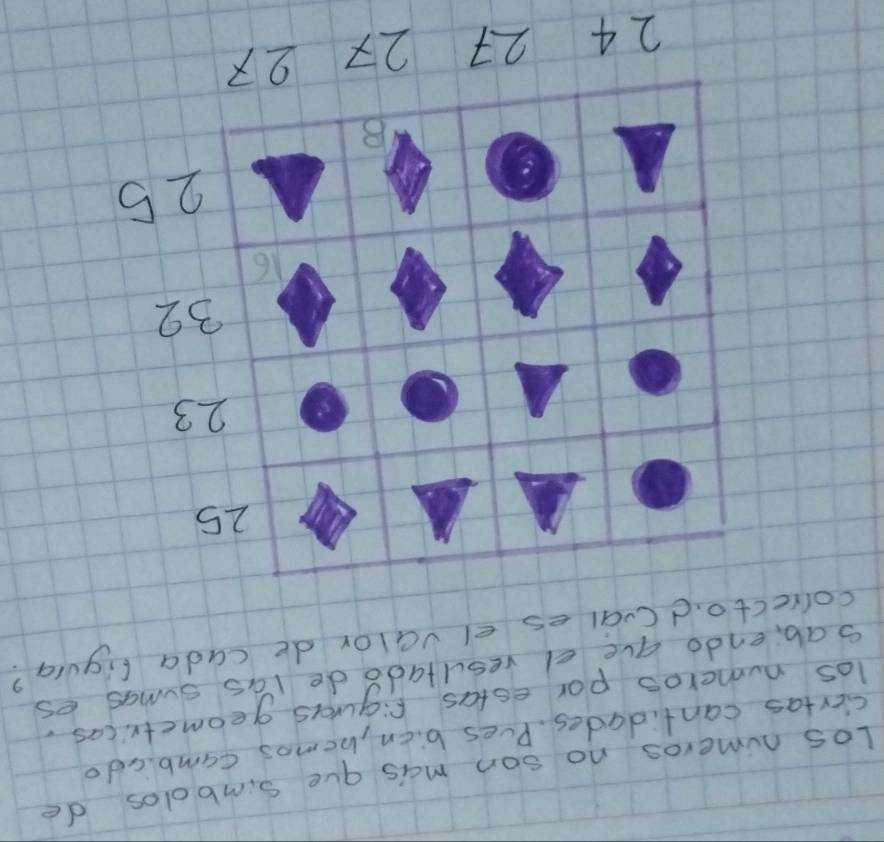 Los números no son más que símbolos de
ciertas cantidades. Pues bien, hemos cambiado
los numeros por estas figuras geometricas.
sabiendo que el resultado de las sumas es
correcto.¿Cual es el valor de cada figura?
25
23
16 32
8 25
24 27 27 27